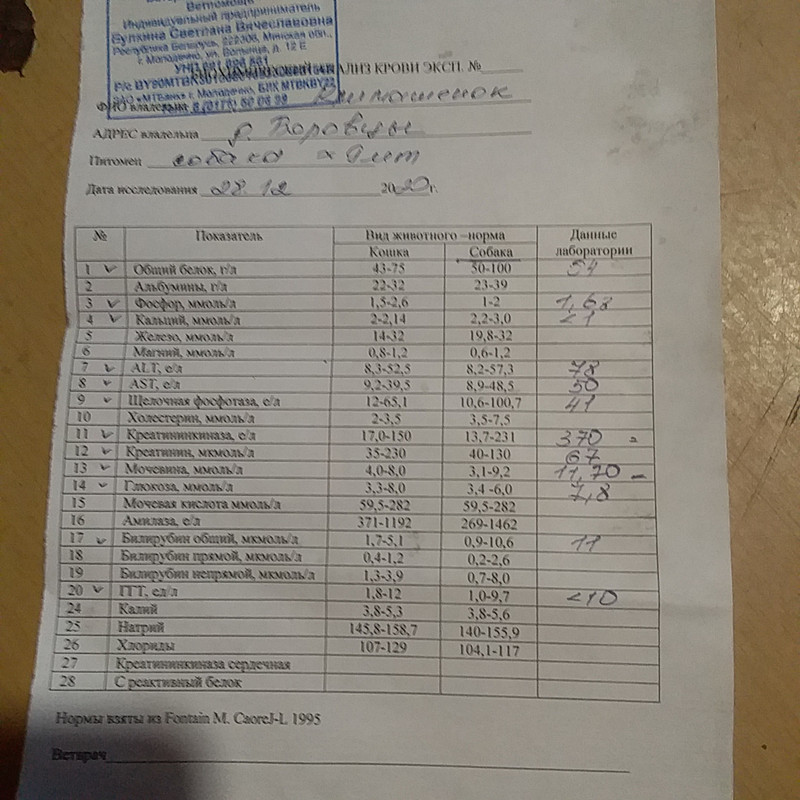 Индивидуальный предприниматель
Булкина Светлана Вячеславовна
Республика Беларусь, 222306, Минская обл.,
г. Молодечно, ул.
АНАЛИЗ КРОВИ ЭКСП. №
ФИО владельца
АДРЕС владельца д. Боровцы
Питомец собака 9 лет
Дата исследования 28.12 2020г.
№ Показатель Вид животного –норма Данные лаборатории
Кошка Собака
1 Общий белок, г/л 43-75 50-100 54
2 Альбумины, г/л 22-32 23-39
3 Фосфор, ммоль/л 1,5-2,6 1-2 1,68
4 Кальций, ммоль/л 2-2,14 2,2-3,0 <1
5 Железо, ммоль/л 14-32 19,8-32
6 Магний, ммоль/л 0,8-1,2 0,6-1,2
7 ALT, е/л 8,3-52,5 8,2-57,3 78
8 AST, е/л 9,2-39,5 8,9-48,5 50
9 Щелочная фосфотаза, е/л 12-65,1 10,6-100,7 41
10 Холестерин, ммоль/л 2-3,5 3,5-7,5
11 Креатининкиназа, е/л 17,0-150 13,7-231 370
12 Креатинин, мкмоль/л 35-230 40-130 67
13 Мочевина, ммоль/л 4,0-8,0 3,1-9,2 11,70
14 Глюкоза, ммоль/л 3,3-8,0 3,4 -6,0 7,8
15 Мочевая кислота ммоль/л 59,5-282 59,5-282
16 Амилаза, е/л 371-1192 269-1462
17 Билирубин общий, мкмоль/л 1,7-5,1 0,9-10,6 11
18 Билирубин прямой, мкмоль/л 0,4-1,2 0,2-2,6
19 Билирубин непрямой, мкмоль/л 1,3-3,9 0,7-8,0
20 ГГТ, ед/л 1,8-12 1,0-9,7 <10
24 Калий 3,8-5,3 3,8-5,6
25 Натрий 145,8-158,7 140-155,9
26 Хлориды 107-129 104,1-117
27 Креатининкиназа сердечная
28 С реактивный белок
Нормы взяты из Fontain M. CaoreJ-L 1995
Ветврач